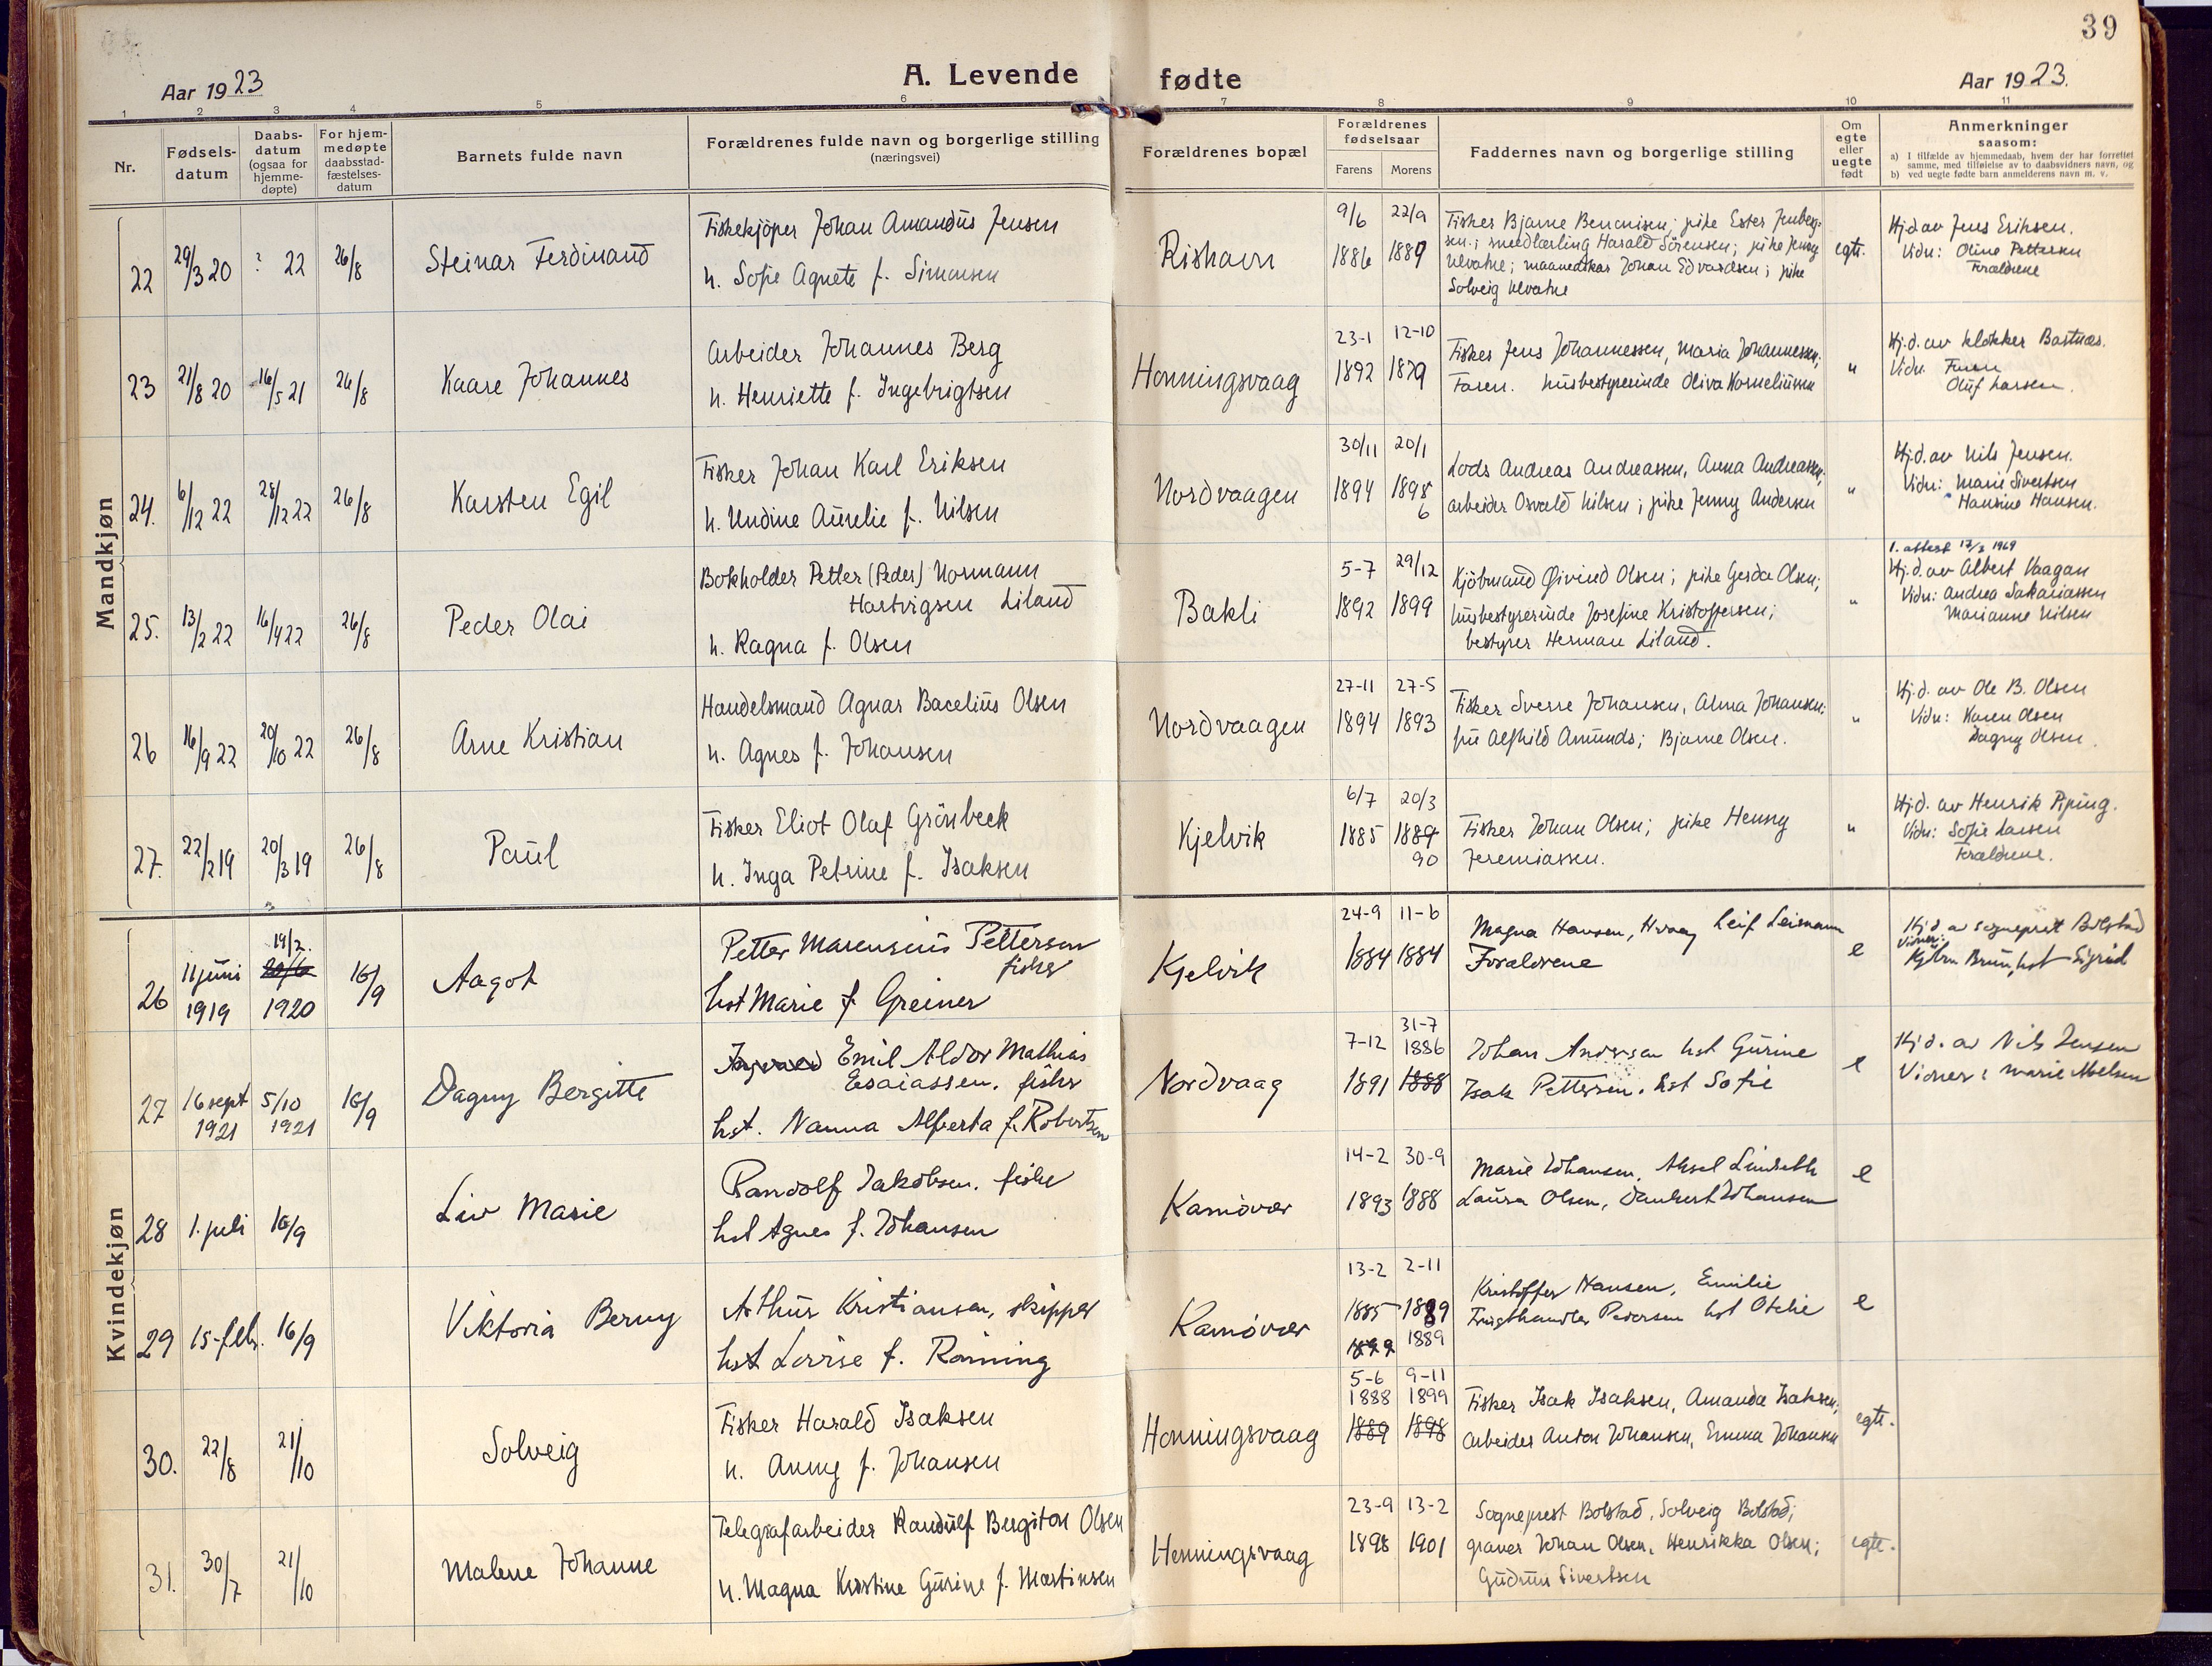 39
Aar 1923
A. Levende fødte
Aar 1923.
1 2 3 4 5 6 7 8 9 10 11
Nr.
Fødsels-
datum
Daabs-
datum
(ogsaa for
hjemme-
døpte)
For hjem-
medøpte
daabsstad-
fæstelses-
datum
Barnets fulde navn
Forældrenes fulde navn og borgerlige stilling
(næringsvei)
Forældrenes bopæl
Forældrenes
fødselsaar
Farens Morens
Faddernes navn og borgerlige stilling
Om
egte
eller
uegte
født
Anmerkninger
saasom:
a) I tilfælde av hjemmedaab, hvem der har forrettet
samme, med tilføielse av to daabsvidners navn, og
b) ved uegte fødte barn anmelderens navn m. v.
Mandkjøn
22
29/3 20
? 22
26/8
Steinar Ferdinand
Fiskekjøper Johan Amandus Jensen
h. Sofie Agnete f. Simonsen
Rishavn
9/6 22/9
1886 1889
Fisker Bjarne Benonisen; pike Ester
smedlærling Harald Sörensen; pike Jenny
Ulvatne; Johan Edvardsen; pike
Solveig Ulvatne
egte.
Hj.d av Jens Eriksen.
Vidn: Oline Pettersen
Forældrene
23
21/8 20
16/5 21
26/8
Kaare Johannes
Arbeider Johannes Berg
h. Henriette f. Ingebrigtsen
Honningsvaag
23-1 12-10
1892 1879
Fisker Jens Johannessen, Maria Johannessen,
Faren. husbestyrerinde Oliva Korneliussen
"
Hj.d. av klokker Bastnæs.
Vidn. Faren
Oluf Larsen.
24.
6/12 22
28/12 22
26/8
Karsten Egil
Fisker Johan Karl Eriksen
h. Undine Aurelie f. Nilsen
Nordvaagen
30/11 20/1
1894 1898
6
Lods Andreas Andreassen, Anna Andreassen,
arbeider Osvald Nilsen; pike Jenny Andersen
"
Hj.d. av Nils Jensen.
Vidn: Marie Sivertsen
Hansine Hansen.
25.
13/2 22
16/4 22
26/8
Peder Olai
Bokholder Petter (Peder) Normann
Hartvigsen Liland
h. Ragna f. Olsen
Bakli
5-7 29/12
1892 1899
Kjöbmand Øivind Olsen; pike Gerda Olsen;
husbestyrerinde Josefine Kristoffersen;
bestyrer Herman Liland.
"
1. attest 17/2 1969
Hj.d. av Albert Vaagan
Vidn: Andrea Sakariassen
Marianne Nilsen
26
16/9 22
20/10 22
26/8
Arne Kristian
Handelsmand Agnar Bacelius Olsen
h. Agnes f. Johansen
Nordvaagen
27-11 27-5
1894 1893
Fisker Sverre Johansen, Alma Johansen;
fru Alfhild Amunds; Bjarne Olsen.
"
Hj.d. av Ole B. Olsen
Vidn: Karen Olsen
Dagny Olsen.
27.
22/2 19
20/3 19
26/8
Paul
Fisker Eliot Olaf Grönbeck
h. Inga Petrine f. Isaksen
Kjelvik
6/7 20/3
1885 1889
90
Fisker Johan Olsen; pike Henny
Jeremiassen.
"
Hj.d. av Henrik Piping.
Vidn: Sofie Larsen
Forældrene.
Kvindekjøn
26
11 juni
1919
19/2.
20/6
1920
16/9
Aagot
Petter Marensius Pettersen
fisker
hst Marie f. Greiner
Kjelvik
24-9 11-6
1884 1884
Magna Hansen, Hvaag Leif Leismann
Forældrene
e
Hj.d av sogneprest Bolstad
Vidner:
Kjbm Bruun, hst Sigrid
27
16 sept
1921
5/10
1921
16/9
Dagny Bergitte
Ingvald Emil Aldor Mathias
Esaiassen. fisker
hst. Nanna Alberta f. Robertsen
Nordvaag
7-12 31-7
1886
1891 1888
Johan Andersen hst Gurine
Isak Pettersen. hst Sofie
e
Hj.d. av Nils Jensen
Vidner: Marie Abelsen
28
1. juli
16/9
Liv Marie
Randolf Jakobsen. fisker
hst Agnes f. Johansen
Kamøvær
14-2 30-9
1893 1888
Marie Johansen, Aksel Lindseth
Laura Olsen, Dankert Johansen
e
29
15-feb.
16/9
Viktoria Berny
Arthur Kristiansen, skipper
hst Lovise f. Rönning
Kamøvær
13-2 2-11
1885 1889
1899 1889
Kristoffer Hansen, Emilie
Pedersen hst Otelie
e
30.
22/8
21/10
Solveig
Fisker Harald Isaksen
h. Anny f. Johansen
Honningsvaag
5-6 9-11
1888 1899
1889 1898
Fisker Isak Isaksen, Amanda Isaksen,
arbeider Anton Johansen, Emma Johansen
egte.
31.
30/7
21/10
Malene Johanne
Telegrafarbeider Randulf Bergiton Olsen
h. Magna Kristine Gurine f. Martinsen
Honningsvaag
23-9 13-2
1898 1901
Sogneprest Bolstad, Solveig Bolstad;
graver Johan Olsen, Henrikka Olsen;
Gudrun Sivertsen
egte.